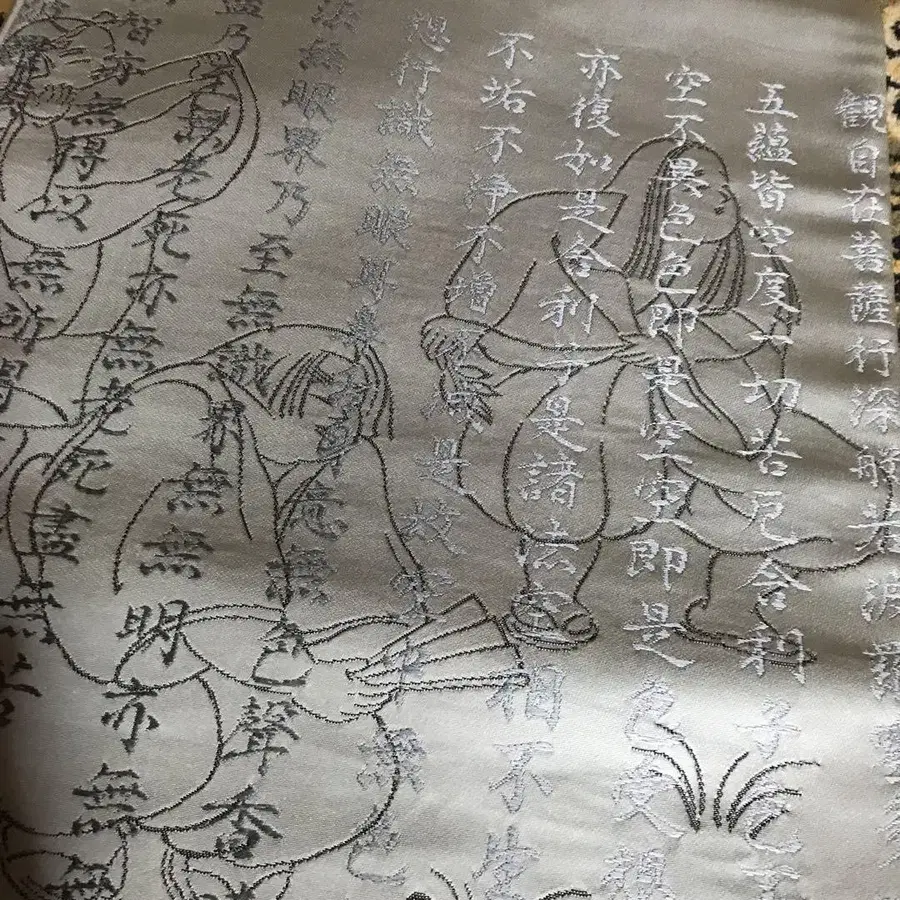 觀自在菩薩行深般若波羅蜜
五蘊皆空度一切苦厄舎利子色不
空不異色色即是空空即是色受想
亦復如是舎利子是諸法空相不生
不垢不浄不増不減是故空中無色
想行識無眼耳鼻舌身意無色聲香
法無眼界乃至無識界無無明亦無無
盡乃至無老死亦無老死盡無苦
智亦無得以無所得